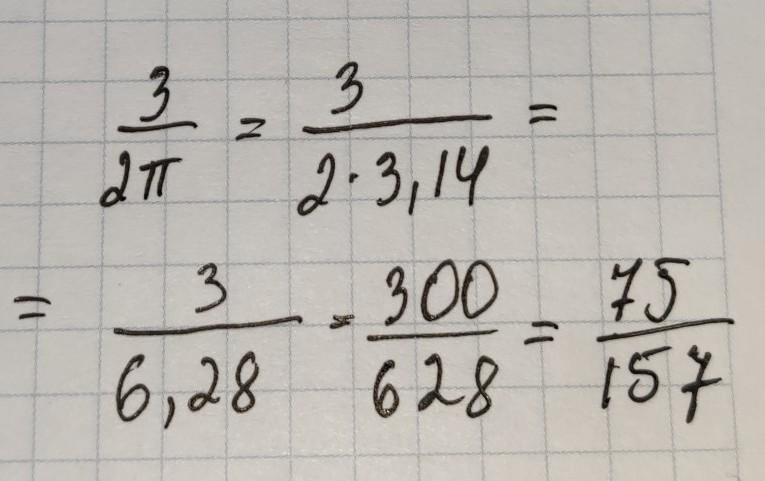 3/2π = 3/2·3,14 =
= 3/6,28 = 300/628 = 75/157